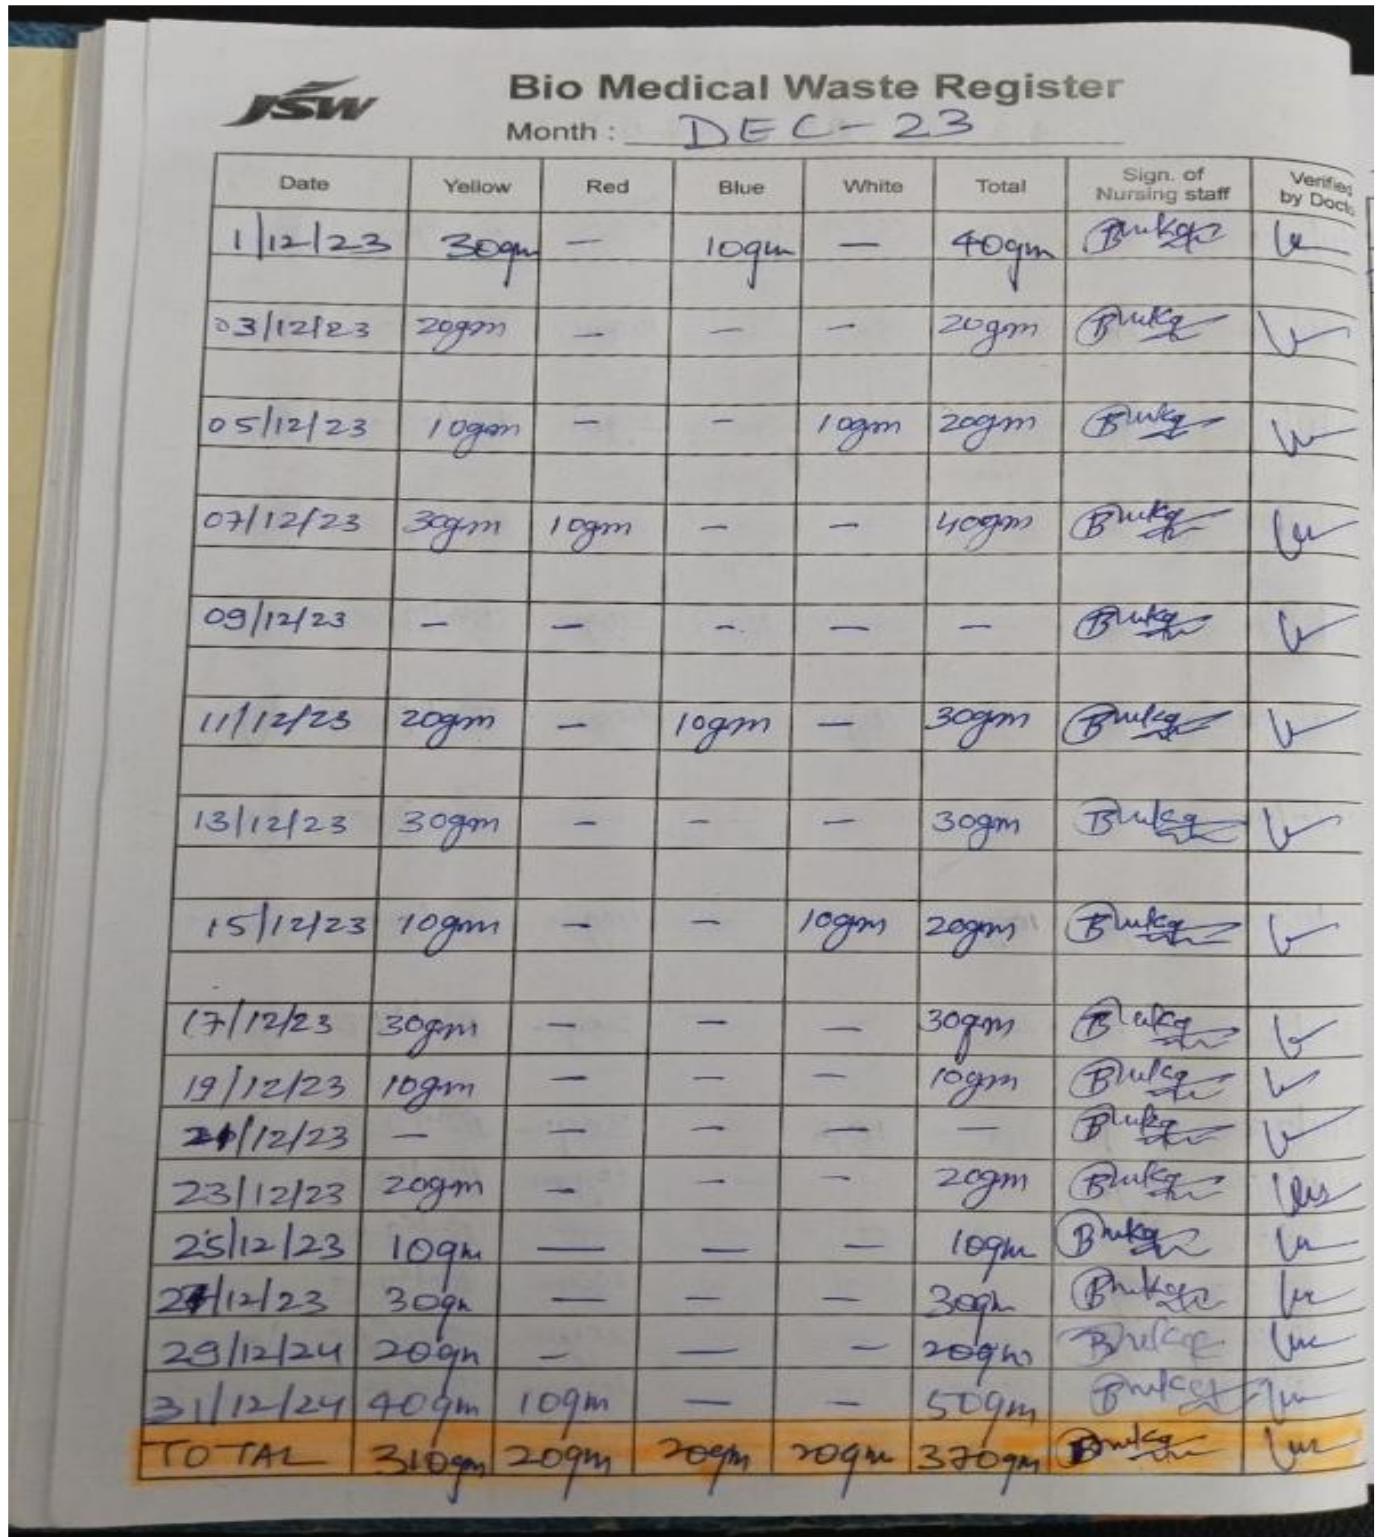 JSW
Bio Medical Waste Register
Month : DEC-23
Date Yellow Red Blue White Total Sign. of Nursing staff Verified by Docto
1/12/23 30gm — 10gm — 40gm
03/12/23 20gm — — — 20gm
05/12/23 10gm — — 10gm 20gm
07/12/23 30gm 10gm — — 40gm
09/12/23 — — — — —
11/12/23 20gm — 10gm — 30gm
13/12/23 30gm — — — 30gm
15/12/23 10gm — — 10gm 20gm
17/12/23 30gm — — — 30gm
19/12/23 10gm — — — 10gm
21/12/23 — — — — —
23/12/23 20gm — — — 20gm
25/12/23 10gm — — — 10gm
27/12/23 30gm — — — 30gm
29/12/24 20gm — — — 20gm
31/12/24 40gm 10gm — — 50gm
TOTAL 310gm 20gm 20gm 20gm 370gm